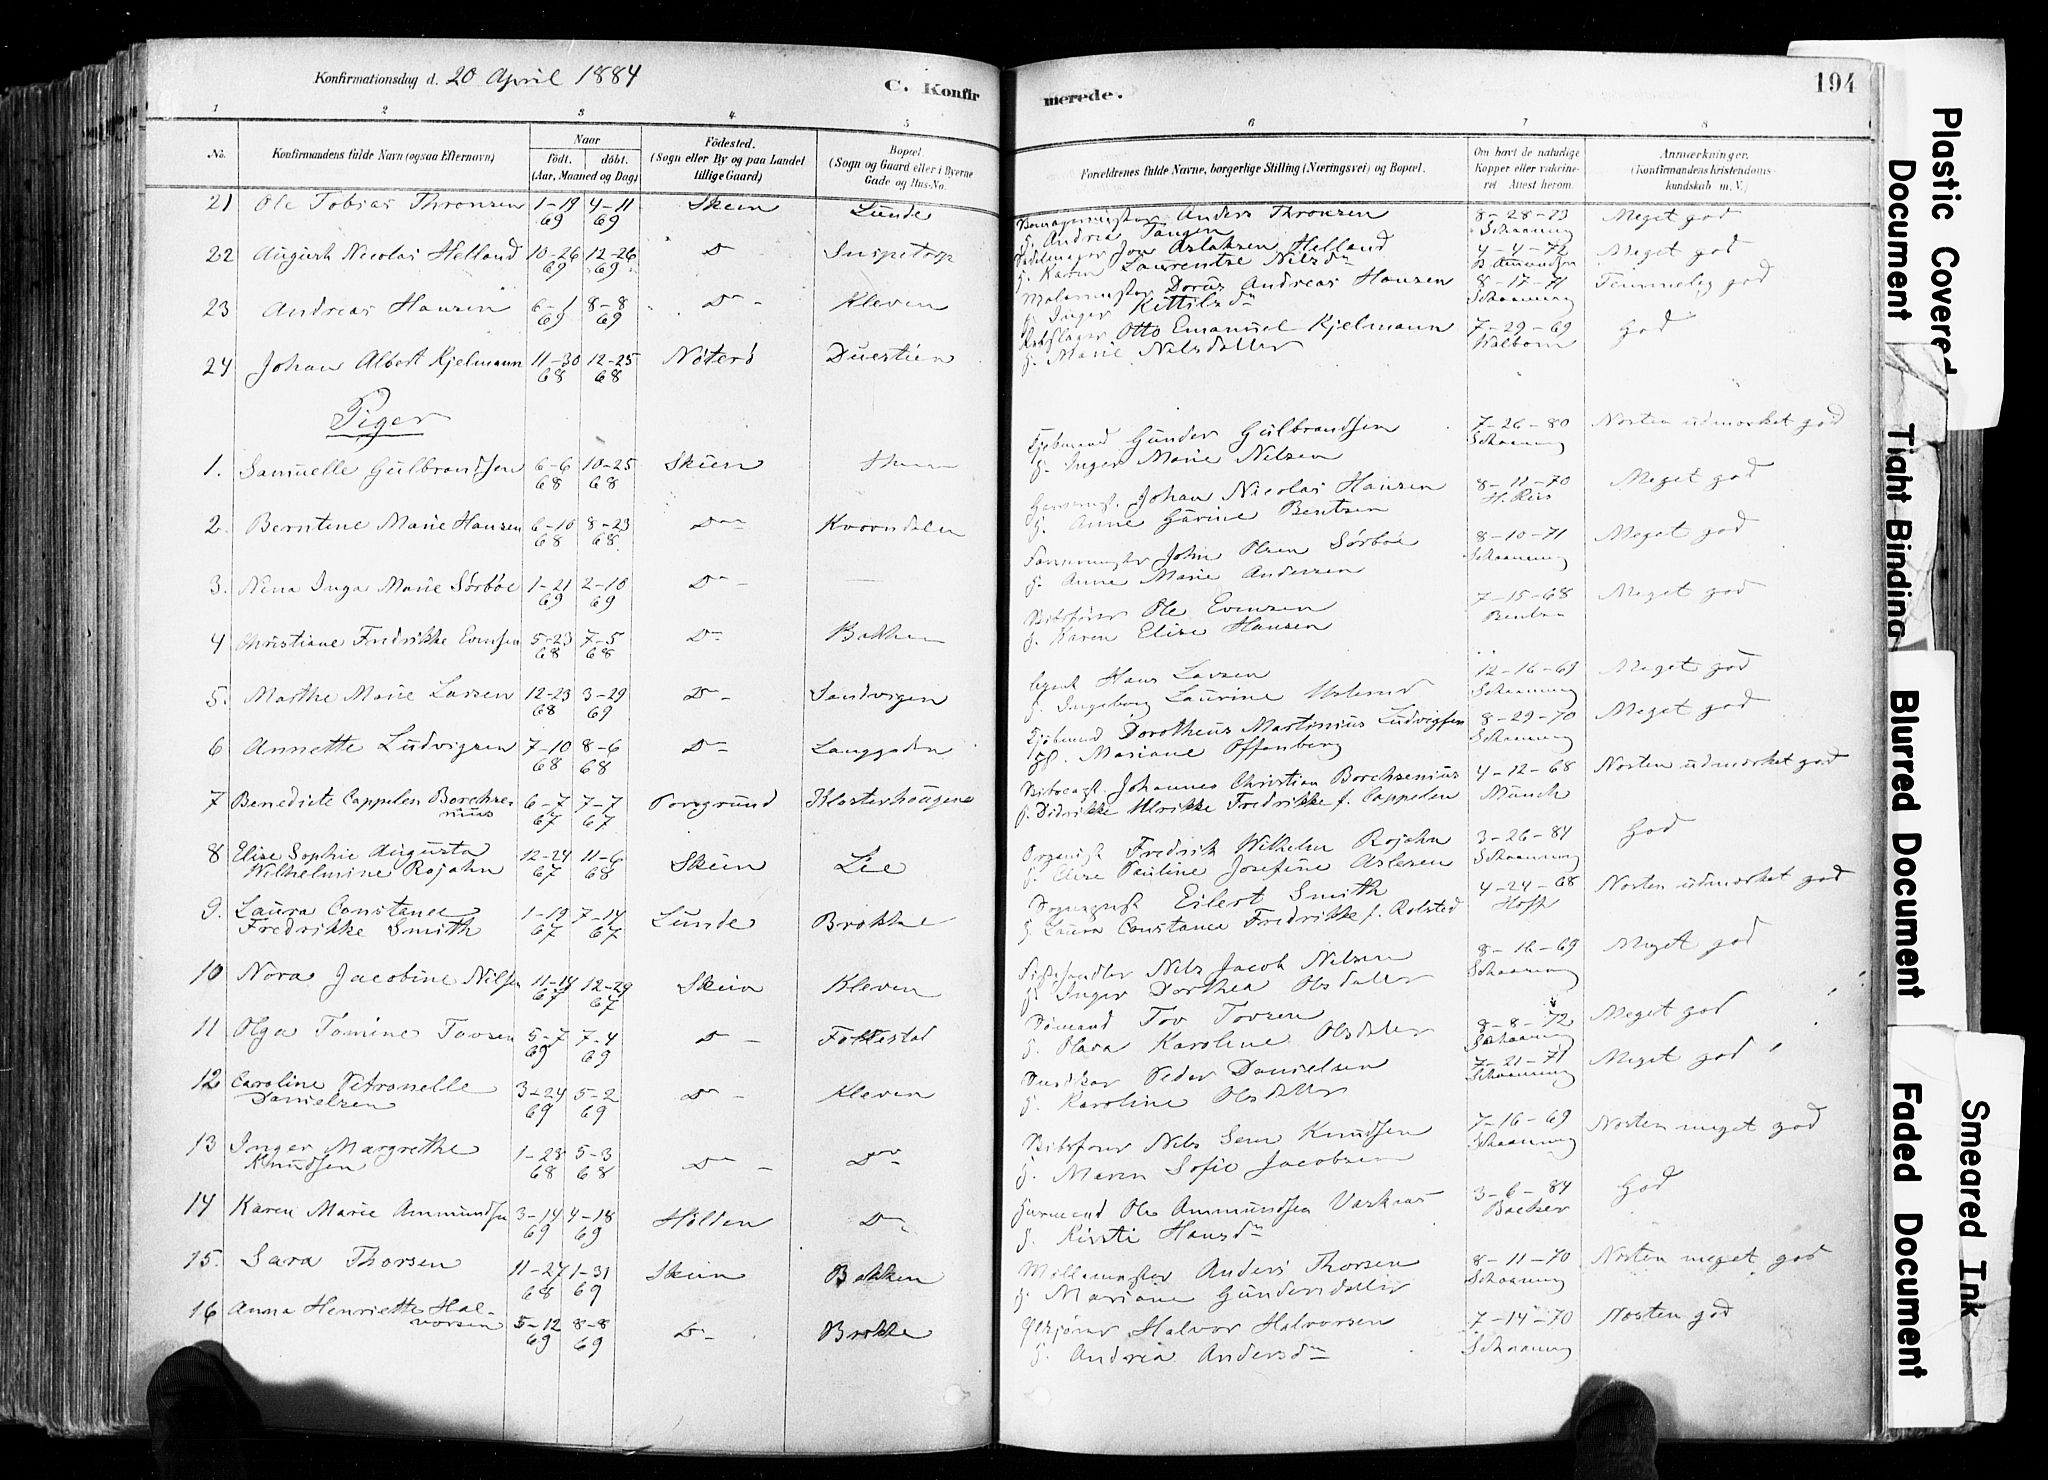 Konfirmationsdag d. 20 April 1884
C. Konfirmerede.
194
1 2 3 4 5 6 7 8
No.
Konfirmandens fulde Navn (ogsaa Efternavn)
Naar
födt. döbt.
(Aar, Maaned og Dag)
Födested.
(Sogn eller By og paa Landet
tillige Gaard)
Bopæl.
(Sogn og Gaard eller i Byerne
Gade og Hus-No.
Forældrenes fulde Navne, borgerlige Stilling (Næringsvei) og Bopæl.
Om havt de naturlige
Kopper eller vakcine-
ret Attest herom.
Anmærkninger.
(Konfirmandens kristendoms-
kundskab m. V.)
21 Ole Tobias Thronsen 1-19 69 4-11 69 Skien Lunde Anders Thronsen 8-28-73 Meget god
g. Andrea Tangen Schaaning
22 August Nicolai Helland 10-26 69 12-26 69 Do Snipetorp Jon Aslaksen Helland 4-4-72 Meget god
g. Karen Laurentze Nilsdn
23 Andreas Hansen 6-1 69 8-8 69 Do Kleven Malermester Andreas Hansen 8-17-71 Temmelig god
g. Inger Kittilsdn Schaaning
24 Johan Albert Kjelmann 11-30 68 12-25 68 Nøterø Duestien Otto Emanuel Kjelmann 7-29-69 God
g. Marie Nilsdatter Walbom
Piger
1. Samuelle Gulbrandsen 6-6 68 10-25 68 Skien Gunder Gulbrandsen 7-26-80 Næsten udmærket god
g. Inger Marie Nilsen Schaaning
2. Berntine Marie Hansen 6-10 68 8-23 68 Do Kverndalen Johan Nicolai Hansen 8-11-70 Meget god
g. Anne Gurine Bentsen
3. Nina Inga Marie Sørbøe 1-21 69 2-10 69 Do John Olsen Sørbøe 8-10-71 Meget god
g. Anne Marie Andersen Schaaning
4 Christiane Fredrikke Evensen 5-23 68 7-5 68 Do Bakken Ole Evensen 7-15-68 Meget god
g. Karen Elise Hansen Bentsen
5. Marthe Marie Larsen 12-23 68 3-29 69 Do Sandvigen Agent Hans Larsen 12-16-69 Meget god
g. Ingeborg Laurine Schaaning
6 Annette Ludvigsen 7-10 68 8-6 68 Do Langgaden Dorotheus Martinius Ludvigsen 8-29-70 Meget god
g. Mariane Offenberg Schaaning
7 Benedicte Cappelen Borchsenius 6-7 67 7-7 67 Porsgrund Klosterhaugene Johannes Christian Borchsenius 4-12-68 Næsten udmærket god
g. Didrikke Ulrikke Fredrikke f. Cappelen Münch
8 Elise Sophie Augusta
Wilhelmine Rojahn 12-24 67 11-6 68 Skien Lie Organist Fredrik Wilhelm Rojahn 3-26-84 God
g. Elise Pauline Josefine Aslesen Schaaning
9. Laura Constance
Fredrikke Smith 1-19 67 7-14 67 Lunde Brokke Eilert Smith 4-24-68 Næsten udmærket god
g. Laura Constance Fredrikke f. Rolsted Hoff
10 Nora Jacobine Nilsen 11-14 67 12-29 67 Skien Kleven Nils Jacob Nilsen 8-16-69 Meget god
g. Inger Dorthea Olsdatter Schaaning
11 Olga Tomine Tovsen 5-7 69 7-4 69 Do Follestad Tov Tovsen 8-8-72 Meget god
g. Olava Karoline Olsdatter Schaaning
12 Caroline Petronelle
Danielsen 3-24 69 5-2 69 Do Kleven Peder Danielsen 7-21-71 Meget god
g. Karoline Olsdatter Schaaning
13 Inger Margrethe
Knudsen 1-28 68 5-3 68 Do Do Nils Sem Knudsen 7-16-69 Næsten meget god
g. Maren Sofie Jacobsen Schaaning
14 Karen Marie Ammundsen 3-14 69 4-18 69 Holden Do Ole Ammundsen 3-6-84 God
g. Kirsti Hansdn Backer
15. Sara Thorsen 11-27 68 1-31 69 Skien Bakken Møllemester Anders Thorsen 8-11-70 Næsten meget god
g. Mariane Gundersdatter Schaaning
16 Anna Henriette Hal-
vorsen 5-12 69 8-8 69 Do Brokke Halvor Halvorsen 7-14-70 Næsten god
g. Andrea Andersdn Schaaning
Plastic Covered Document
Tight Binding
Blurred Document
Faded Document
Smeared Ink